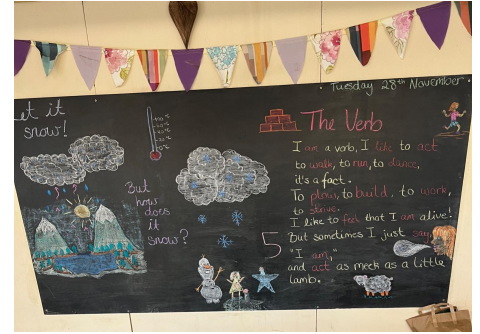 Tuesday 28th November
et it
snow!
But
how
does
it
snow?
The Verb
I am a verb, I like to act
to walk, to run, to dance,
it's a fact.
To plow, to build, to work,
to strive.
I like to feel that I am alive!
5
But sometimes I just say,
"I am,"
and act as meek as a little
lamb.